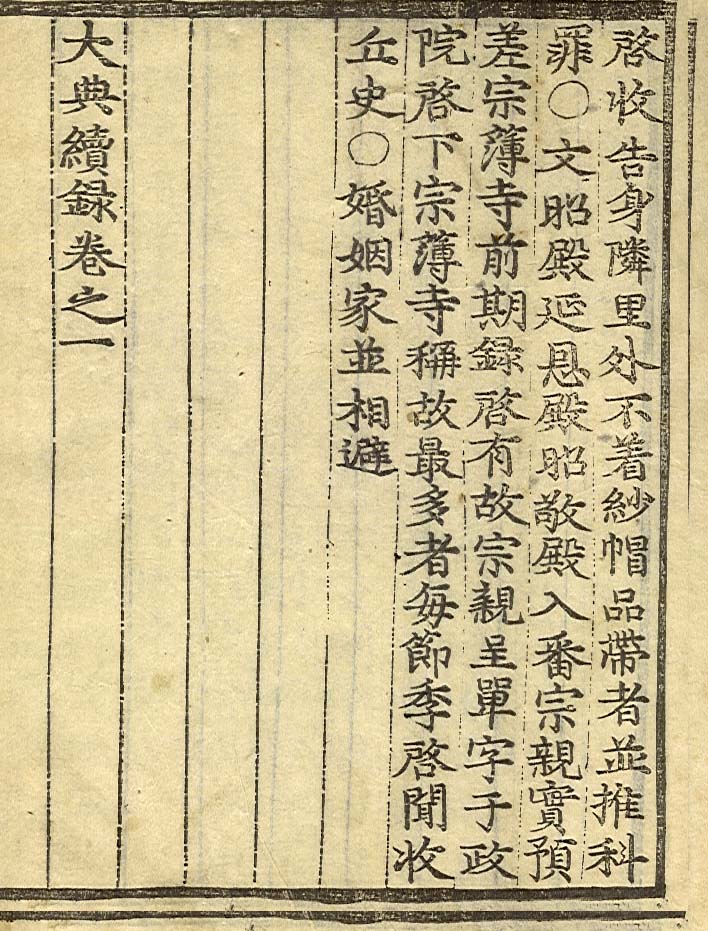 啓收告身隣里外不着紗帽品帶者並推科
罪○文昭殿延恩殿昭敬殿入番宗親實預
差宗薄寺前期錄啓有故宗親呈單字于政
院啓下宗薄寺稱故最多者每節季啓聞收
丘史○婚姻家並相避
大典續錄卷之一